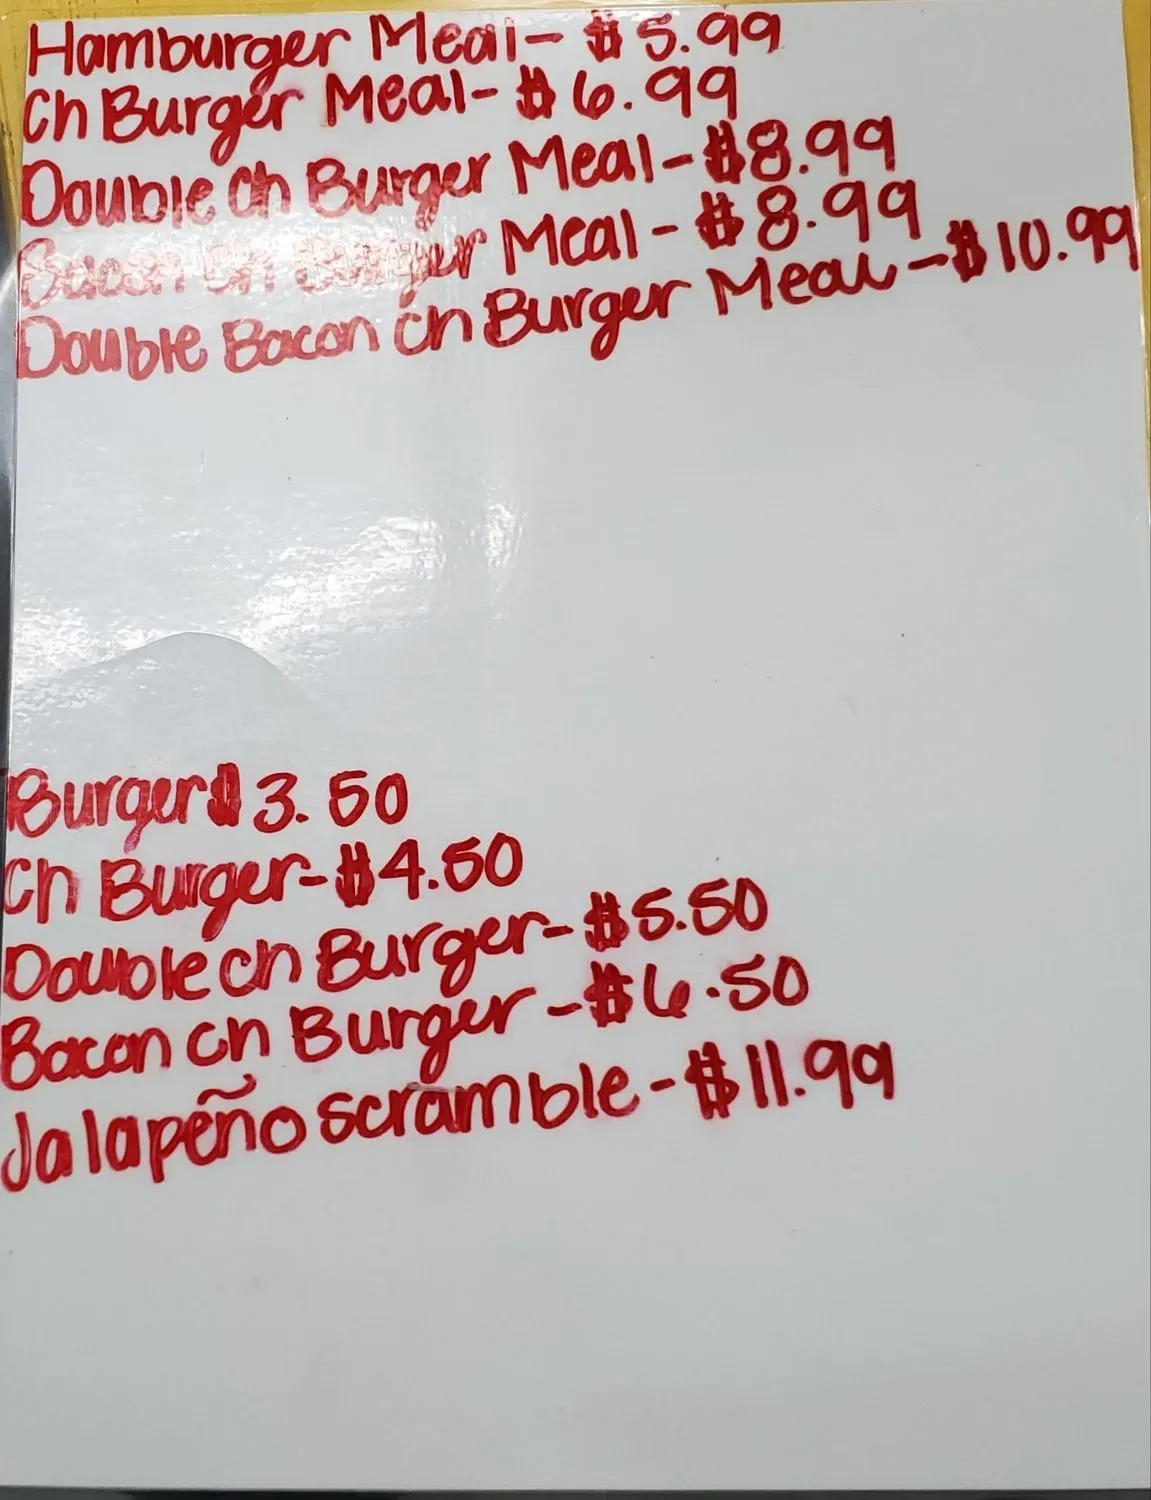 Hamburger Meal- $5.99
Ch Burger Meal- $6.99
Double Ch Burger Meal- $8.99
Bacon Ch Burger Meal- $8.99
Double Bacon Ch Burger Meal -$10.99
Burger$ 3.50
Ch Burger-$4.50
Double ch Burger-$5.50
Bacon ch Burger -$6.50
Jalapeño scramble-$11.99